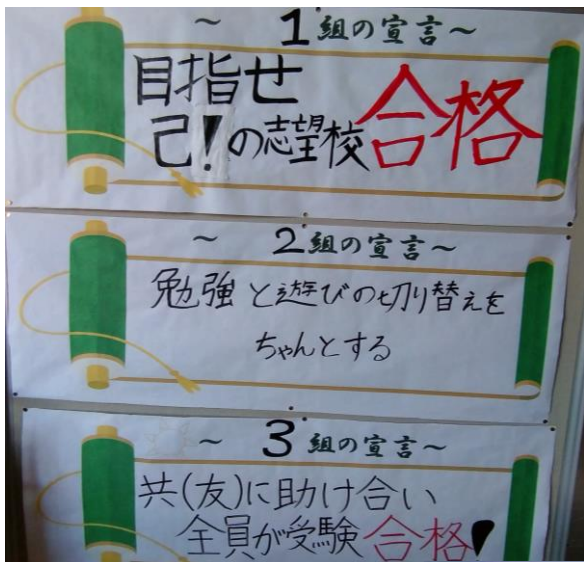 ～ 1組の宣言～
目指せ
己!の志望校合格
～ 2組の宣言～
勉強と遊びの切り替えを
ちゃんとする
～ 3組の宣言～
共(友)に助け合い
全員が受験合格!